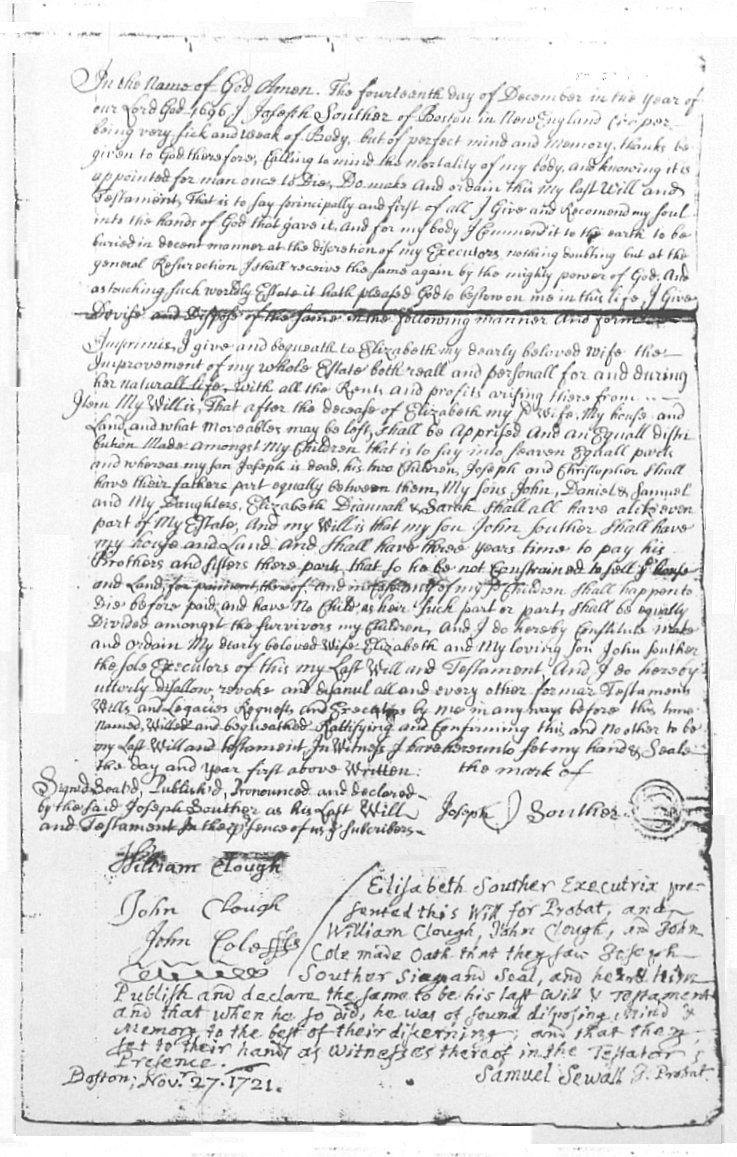 In the Name of God Amen. The fourteenth day of December in the year of
our Lord God 1696 I Joseph Souther of Boston in New England
being very sick and weak of Body, but of perfect mind and Memory, thanks be
given to God therefore, Calling to mind the mortality of my body, and knowing it is
appointed for man once to Die, Do make And ordain this my last Will and
Testament, That is to say principally and first of all I Give and Recomend my soul
into the hands of God that gave it, And for my body I Commend it to the earth to be
buried in decent manner at the discretion of my Executors nothing doubting but at the
general Resurection I shall receive the same again by the mighty power of God; And
as touching such worldly Estate it hath pleased God to bestow on me in this life, I Give
Devise and Dispose of the same in the following manner And form
Imprimis, I give and bequeath to Elizabeth my dearly beloved Wife the
Improvement of my whole Estate both reall and personall for and during
her naturall life, with all the Rents and profits arising there from
Item My Will is, That after the decease of Elizabeth my sd Wife, My house and
Land, and what Moveables may be left, shall be Apprised And an Equall distri
bution Made amongst My Children that is to say into seaven Equall parts
and whereas my son Joseph is dead, his two Children, Joseph and Christopher shall
have their fathers part equally between them, My sons John, Daniel & Samuel
and My Daughters, Elizabeth Diannah & Sarah shall all have alike even
part of My Estate, And my Will is that my son John Souther shall have
my house and Land And shall have three years time to pay his
Brothers and sisters there parts that so he be not Constrained to sell ye house
and Land, for paiment thereof: And in Case any of my sd Children shall happen to
die before paid, and have No Child as heir such part or parts, shall be equally
Divided amongst the survivors my Children, And I do hereby Constitute make
and ordain My dearly beloved Wife Elizabeth and My loving son John Souther
the sole Executors of this my Last Will and Testament And I do hereby
utterly disallow, revoke and disanul all and every other former Testaments
Wills and Legacies Requests and Executors by me in any ways before this time
Named, Willed and bequeathed Rattifying and Confirming this and No other to be
my Last Will and testament, In Witness I have hereunto set my hand & Seale
the day and year first above Written: the mark of
Signed Seal'd, Publish'd, Pronounced and declared
by the said Joseph Souther as his Last Will Joseph Souther
and Testament In the psence of us ye Subcribers
William Clough
John Clough
John Cole
Elisabeth Souther Executrix pre-
sented this Will for Probat, and
William Clough, John Clough, and John
Cole made Oath that they saw Joseph
Souther Sign and Seal, and heard him
Publish and declare the same to be his last Will & Testament
and that when he so did, he was of sound disposing Mind &
Memory to the best of their discerning; and that they
set to their hands as Witnesses thereof in the Testator's
Presence.
Boston; Novr. 27. 1721. Samuel Sewall J. Probat.